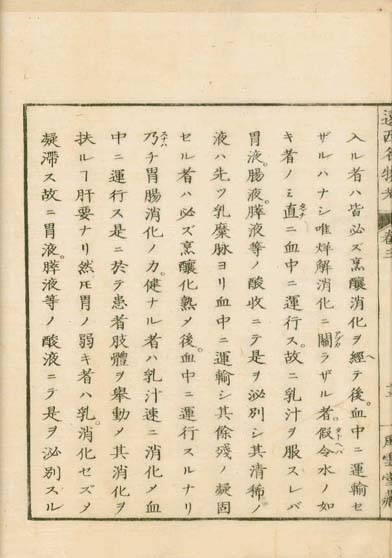 遠西名物考 卷三
風雲堂藏
入ル者ハ皆必ズ烹釀消化ヲ經テ後。血中ニ運輸セ
ザルハナシ唯烊解消化ニ關ラザル者。假令水ノ如
キ者ノミ直ニ血中ニ運行ス。故ニ乳汁ヲ服スレバ
胃液。腸液。膵液等ノ酸收ニテ是ヲ泌別シ其清稀ノ
液ハ先ヅ乳糜脉ヨリ血中ニ運輸シ其餘殘ノ凝固
セル者ハ必ズ烹釀化熟メ後。血中ニ運行スルナリ
乃チ胃腸消化ノ力。健ナル者ハ乳汁速ニ消化メ血
中ニ運行ス是ニ於テ患者肢體ヲ舉動メ其消化ヲ
扶ルヿ肝要ナリ然𪜈胃ノ弱キ者ハ乳。消化セズメ
凝滯ス故ニ胃液。膵液等ノ酸液ニテ是ヲ泌別スル